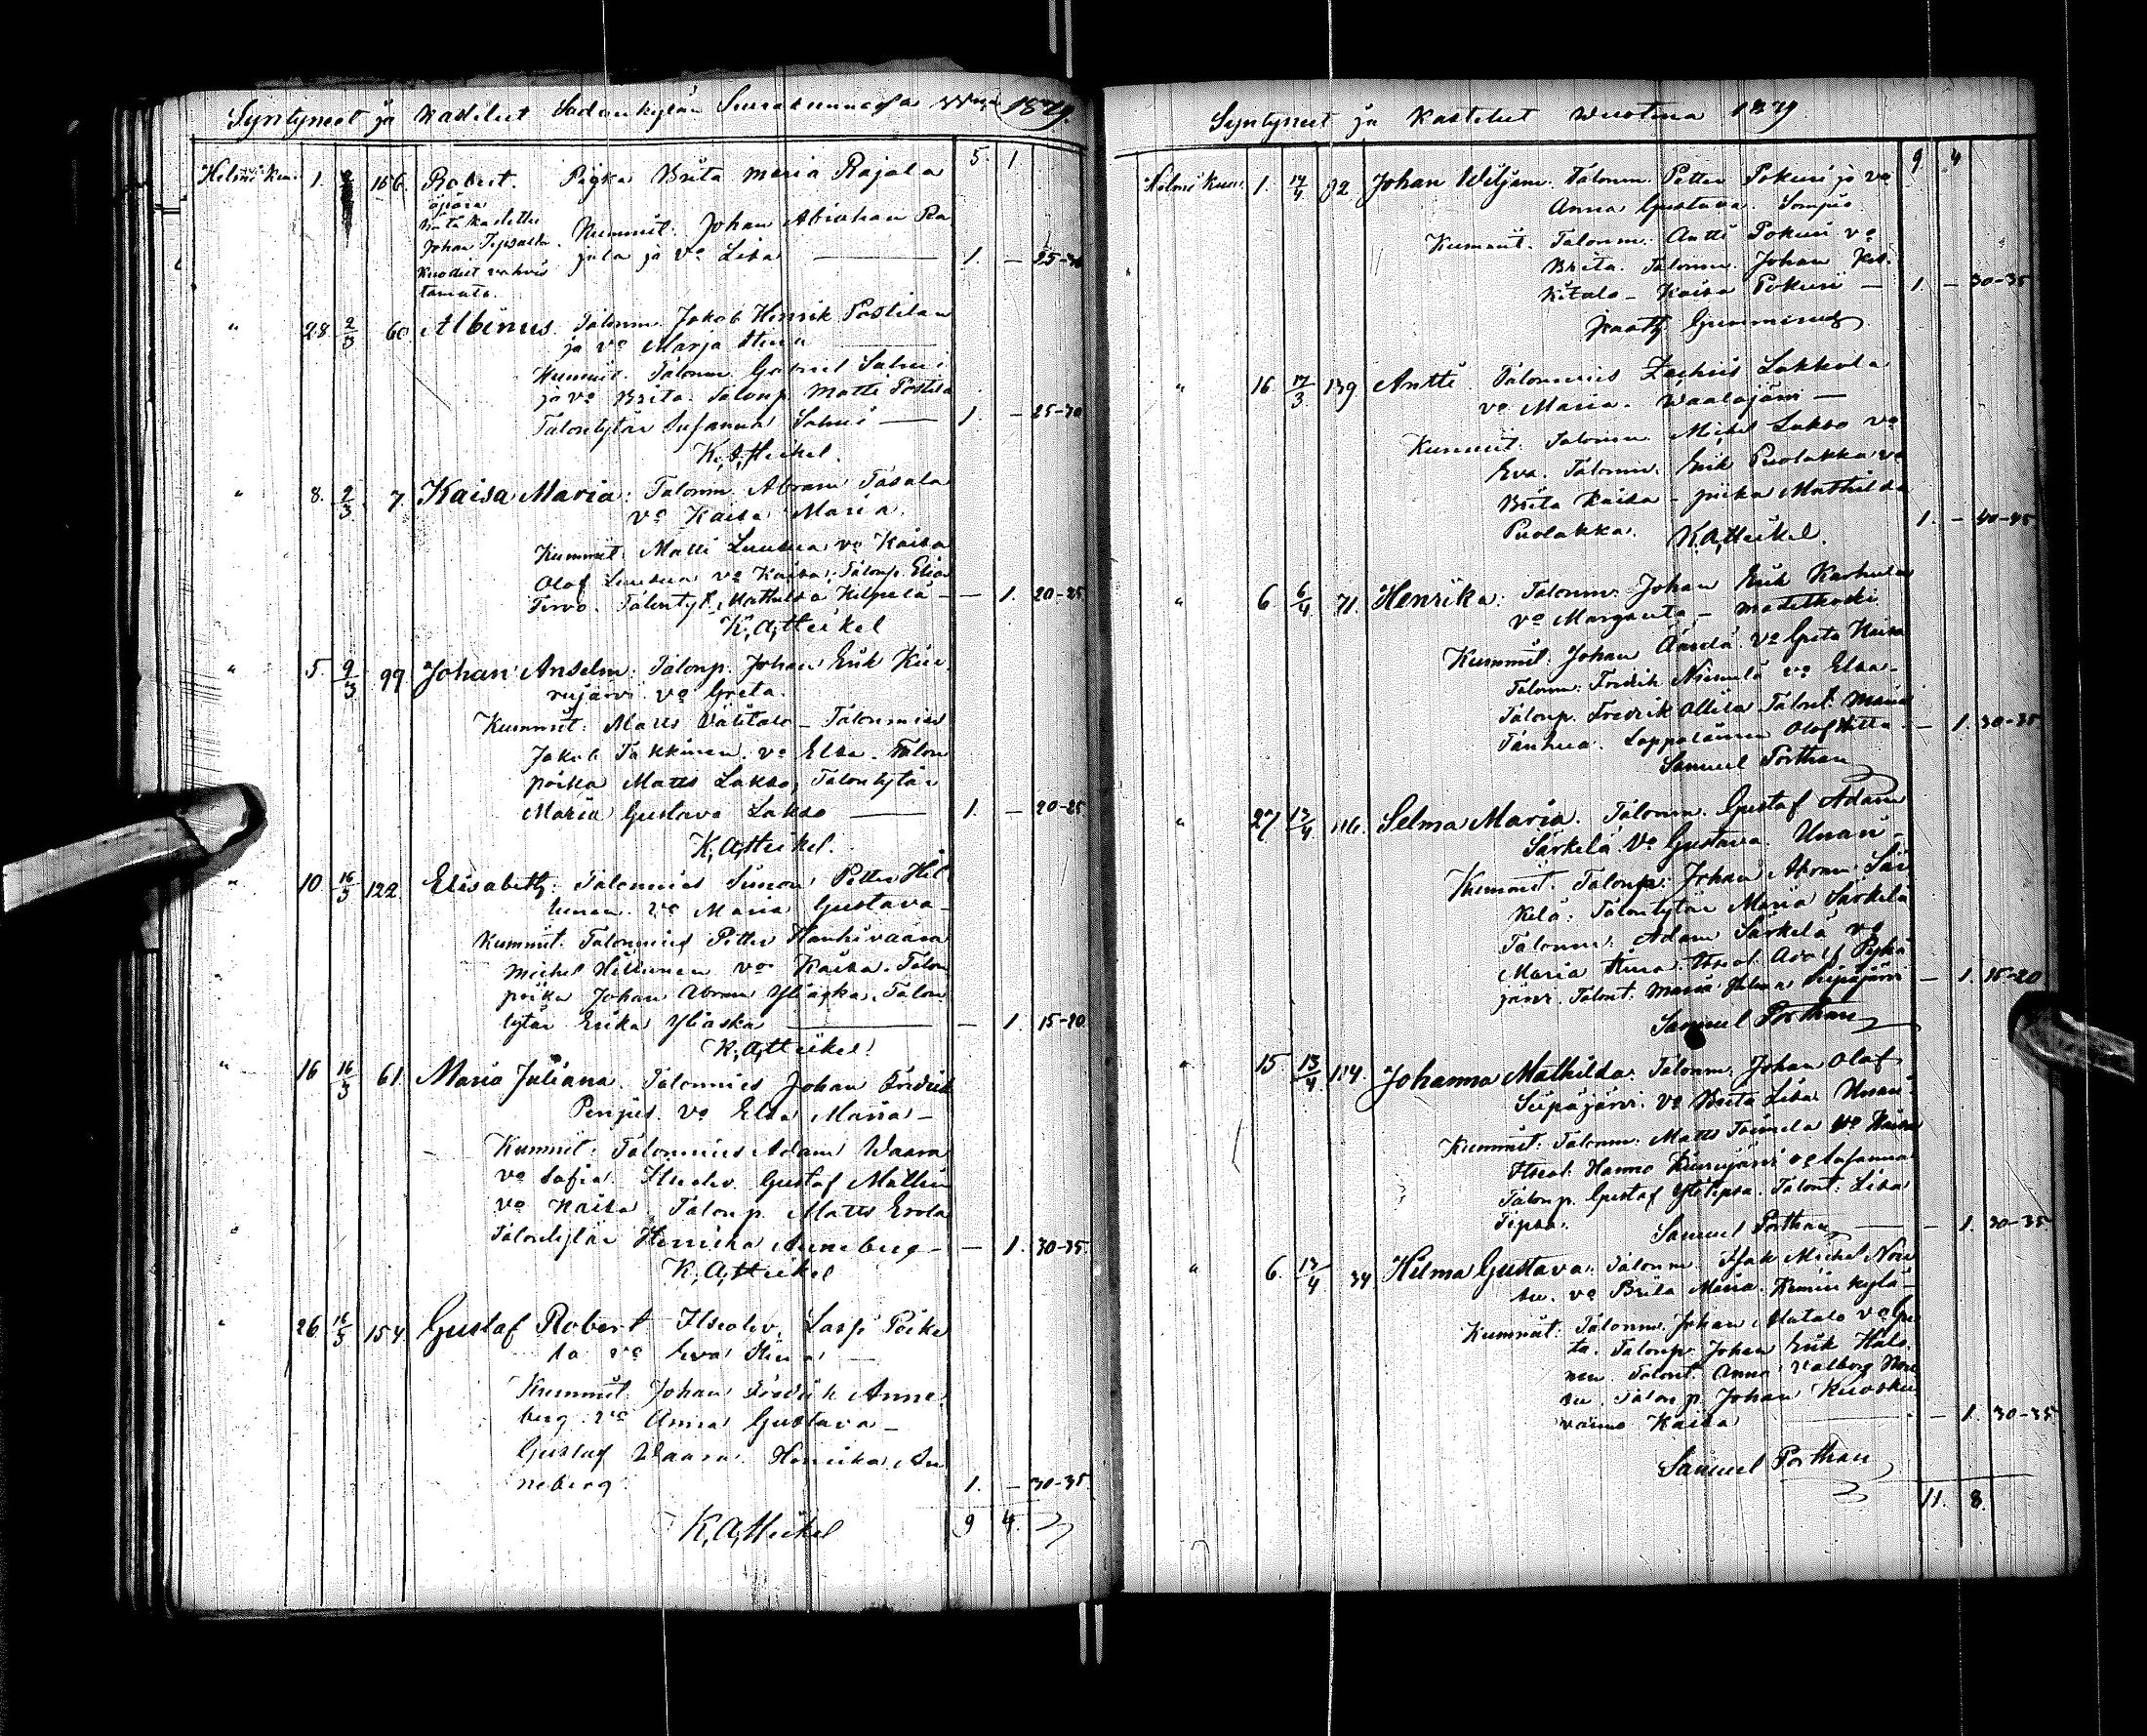 Syntyneet ja Kastetut Sodankylän Seurakunnassa 1879.
5. 1
Helmi Kuu. 1. 156. Robert. Pigka Brita Maria Rajala
äpärä
hätä kastettu
Johan Tepsalta Kummit. Johan Abraham Ra
kuodeet vahvis jala ja vo Lisa — 1. — 25-30
tamata.
" 28. 2/3 60 Albinus. Talonm. Jakob Henrik Postilan
ja vo Marja Stina —
Kummit. Talonm. Gabriel Salmi
ja vo Brita. Talonp. Matti Postila
Talontytär Susanna Salmi — 1. — 25-30
K. A. Heikel.
" 8. 2/3. 7. Kaisa Maria: Talonm. Abram Tasala
vo Kaisa Maria.
Kummit. Matti Luusua vo Kaisa
Olof Luusua vo Kaisa, Talonp. Elias
Tervo. Talontyt. Mathilda Kilpelä — — 1. 20-25
K. A. Heikel
" 5. 9/3 99. Johan Anselm: Talonp. Johan Erik Kiu
rujärvi. vo Greta.
Kummit: Matts Välitalo — Talonmies
Jakob Takkinen. vo Elsa. Talon
poika Matts Lakso, Talontytär
Maria Gustava Lakso — 1. — 20-25
K. A. Heikel.
" 10 16/3 122. Elisabeth: Talonmies Simon Petter Hil
tunen. vo Maria Gustava —
Kummit. Talonmies Petter Hanhivaara
Michel Hiltunen vo Kaisa. Talon
poika Johan Abram Yliaska. Talon
tytär Erika Yliaska — — 1. 15-20
K. A. Heikel.
" 16 16/3 61. Maria Juliana. Talonmies Johan Fredrik
Peujus. vo Elsa Maria —
Kummit: Talonmies Adam Waara
vo Sofia. Gustaf
vo Kaisa. Talonp. Matts Erola
Talontytär Henrika Anneberg — — 1. 30-35.
K. A. Heikel
" 26. 16/3 154. Gustaf Robert: Itseolev. Poike
la vo Eva Stina —
Kummit: Johan Fredrik Anne
berg. vo Anna Gustava —
Gustaf Waara. Henrika An
neberg. 1. — 30-35
K. A. Heikel 9 4.
Syntyneet ja Kastetut Wuotena 1879.
9. 4
Helmi Kuu. 1. 14/4 92 Johan Wiljam. Talonm. Petter Pokuri ja vo
Anna Gustava. Sompio.
Kummit. Talonm. Antti Pokuri vo
Brita. Talonm. Johan Kes
kitalo — Kaisa Pokuri — 1. — 30-35
" 16. 17/3 139. Antti. Talonmies Lakkola
vo Maria. Waalajärvi —
Kummit. Talonm. Michel Lakso vo
Eva. Talonm. Erik Puolakka vo
Brita Kaisa — piika Mathilda
Puolakka. 1. — 40-45
K. A. Heikel.
" 6. 6/4 71. Henrika: Talonm. Johan Erik Karhula
vo Margareta — Madetkoski
Kummit. Johan vo Greta Kaisa
Talonm. Fredrik Niemelä vo Elsa —
Talonp. Fredrik Ollila Talont. Maria
Tanhua. Lappalainen Olof — 1. 30-35
Samuel Porthan
" 27. 13/4 116. Selma Maria. Talonm. Gustaf Adam
Särkelä. Vo Gustava. Unari —
Kummit. Talonp. Johan Abram Sär
kelä: Talontytär Maria Särkelä
Talonm: Adam Särkelä vo
Maria Stina. Itseol. Adolf Pyhä
järvi. Talont. Maria Siipojärvi — 1. 15-20
Samuel Porthan
" 15. 13/4 114. Johanna Mathilda: Talonm. Johan Olof
Siipojärvi. Vo Brita Lisa. Unari —
Kummit: Talonm. Matts Toimela Vo Kaisa
Itseol: Hanno Kiurujärvi vo Susanna
Talonp. Gustaf Ylitepsa. Talont: Lisa
Tepsa. — 1. 30-35
Samuel Porthan
" 6. 13/4 34. Hilma Gustava: Talonm. Isak Michel Nous
su. vo Brita Maria. Keminkylä —
Kummit: Talonm. Johan Alatalo vo Gre
ta. Talonp. Johan Erik Halo
nen. Talont. Anna Valborg Nous
su. Talonp. Johan Kuosku
vaimo Kaisa — 1. 30-35
Samuel Porthan
11. 8.